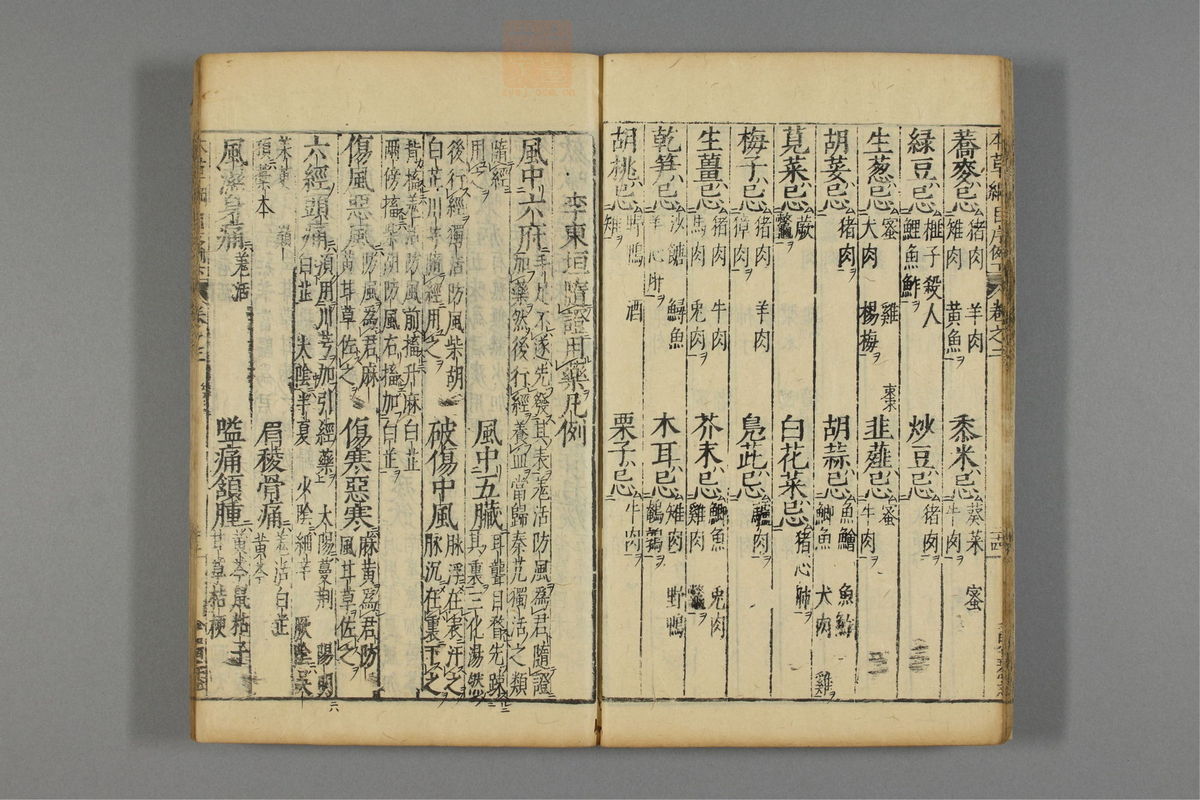 蕎麥忌 猪肉 羊肉 雉肉 黃魚 黍米忌 葵菜 蜜 牛肉
綠豆忌 榧子殺人 鯉魚鮓 炒豆忌 猪肉
生葱忌 蜜 雞 棗 犬肉 楊梅 韭薤忌 蜜 牛肉
胡荽忌 猪肉 胡蒜忌 魚鱠 魚鮓 鯽魚 犬肉 雞
莧菜忌 蕨 鼈 白花菜忌 猪心肺
梅子忌 猪肉 羊肉 獐肉 鳧茈忌 驢肉
生薑忌 猪肉 牛肉 馬肉 兎肉 芥末忌 鯽魚 兎肉 雞肉 鼈
乾笋忌 沙餹 鱘魚 羊心肝 木耳忌 雉肉 野鴨 鵪鶉
胡桃忌 野鴨 酒 雉 栗子忌 牛肉
李東垣隨證用藥凡例
風中六府 手足不遂先發其表羌活防風爲君隨證加藥然後行經養血當歸秦艽獨活之類
隨經用之 風中五臟 耳聾目瞀先疎其裏三化湯然
後行經獨活防風柴胡白芷川芎隨經用之 破傷中風 脉浮在表汗之脉沉在裏下之
背搐羌活防風前搐升麻白芷兩傍搐柴胡防風右搐加白芷
傷風惡風 防風爲君麻黃甘草佐之 傷寒惡寒 麻黃爲君防風甘草佐之
六經頭痛 須用川芎加引經藥 太陽蔓荆 陽明白芷 太陰半夏 少陰細辛 厥陰吳
茱萸 巔頂藁本 眉稜骨痛 羌活白芷黃芩
風濕身痛 羌活 嗌痛頷腫 黃芩鼠粘子甘草桔梗